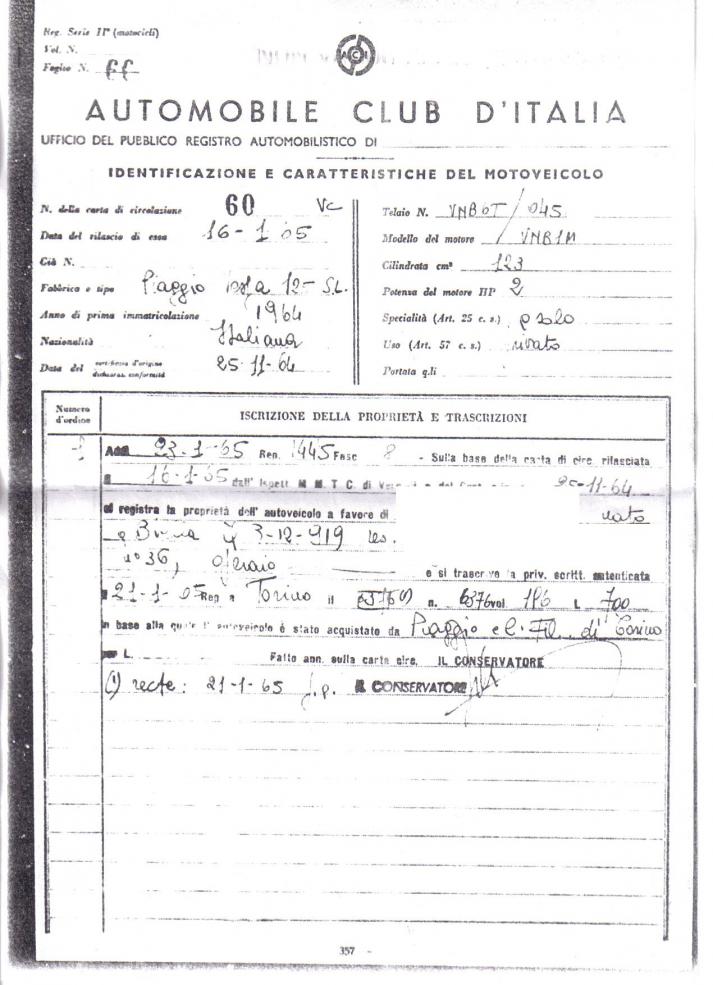 Reg. Serie IIª (motocicli)
Vol. N.
Foglio N. ff
ACI
AUTOMOBILE CLUB D'ITALIA
UFFICIO DEL PUBBLICO REGISTRO AUTOMOBILISTICO DI
IDENTIFICAZIONE E CARATTERISTICHE DEL MOTOVEICOLO
N. della carta di circolazione 60 VC
Data del rilascio di essa 16-1 05
Già N.
Fabbrica e tipo Piaggio 12- S.L.
Anno di prima immatricolazione 1964
Nazionalità Italiana
Data del certificato d'origine dichiaraz. conformità 25-11-64
Telaio N. VNB6T/045
Modello del motore VNB1M
Cilindrata cm³ 123
Potenza del motore HP 2
Specialità (Art. 25 c. s.) p solo
Uso (Art. 57 c. s.) rivato
Portata q.li
Numero d'ordine
ISCRIZIONE DELLA PROPRIETÀ E TRASCRIZIONI
Addì 23-1-65 Reg. 1445 Fasc 8 - Sulla base della carta di circ rilasciata
16-1-65 dall' Ispett M. M. T. C. di 11-64
ed registra la proprietà dell' autoveicolo a favore di nato
3-12-919 res.
nº 36, operaio e si trascrive la priv. scritt. autenticata
21-1- Reg a Torino il n. 6376 vol. 196 L 700
In base alla quale l' autoveicolo è stato acquistato da Piaggio e C. di Torino
per L. Fatto ann. sulla carta circ. IL CONSERVATORE
(1) recte: 21-1-65 IL CONSERVATORE
357